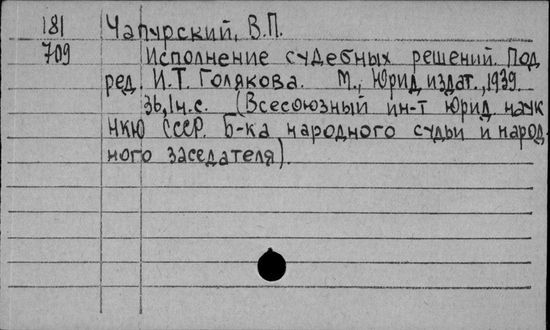 181 Чапурский, В.П.
709 Исполнение судебных решений. Под
ред. И.Т. Голякова. М., Юрид. издат., 1939.
36, 1н.с. (Всесоюзный ин-т юрид. наук
НКЮ СССР. Б-ка народного судьи и народ-
ного заседателя).